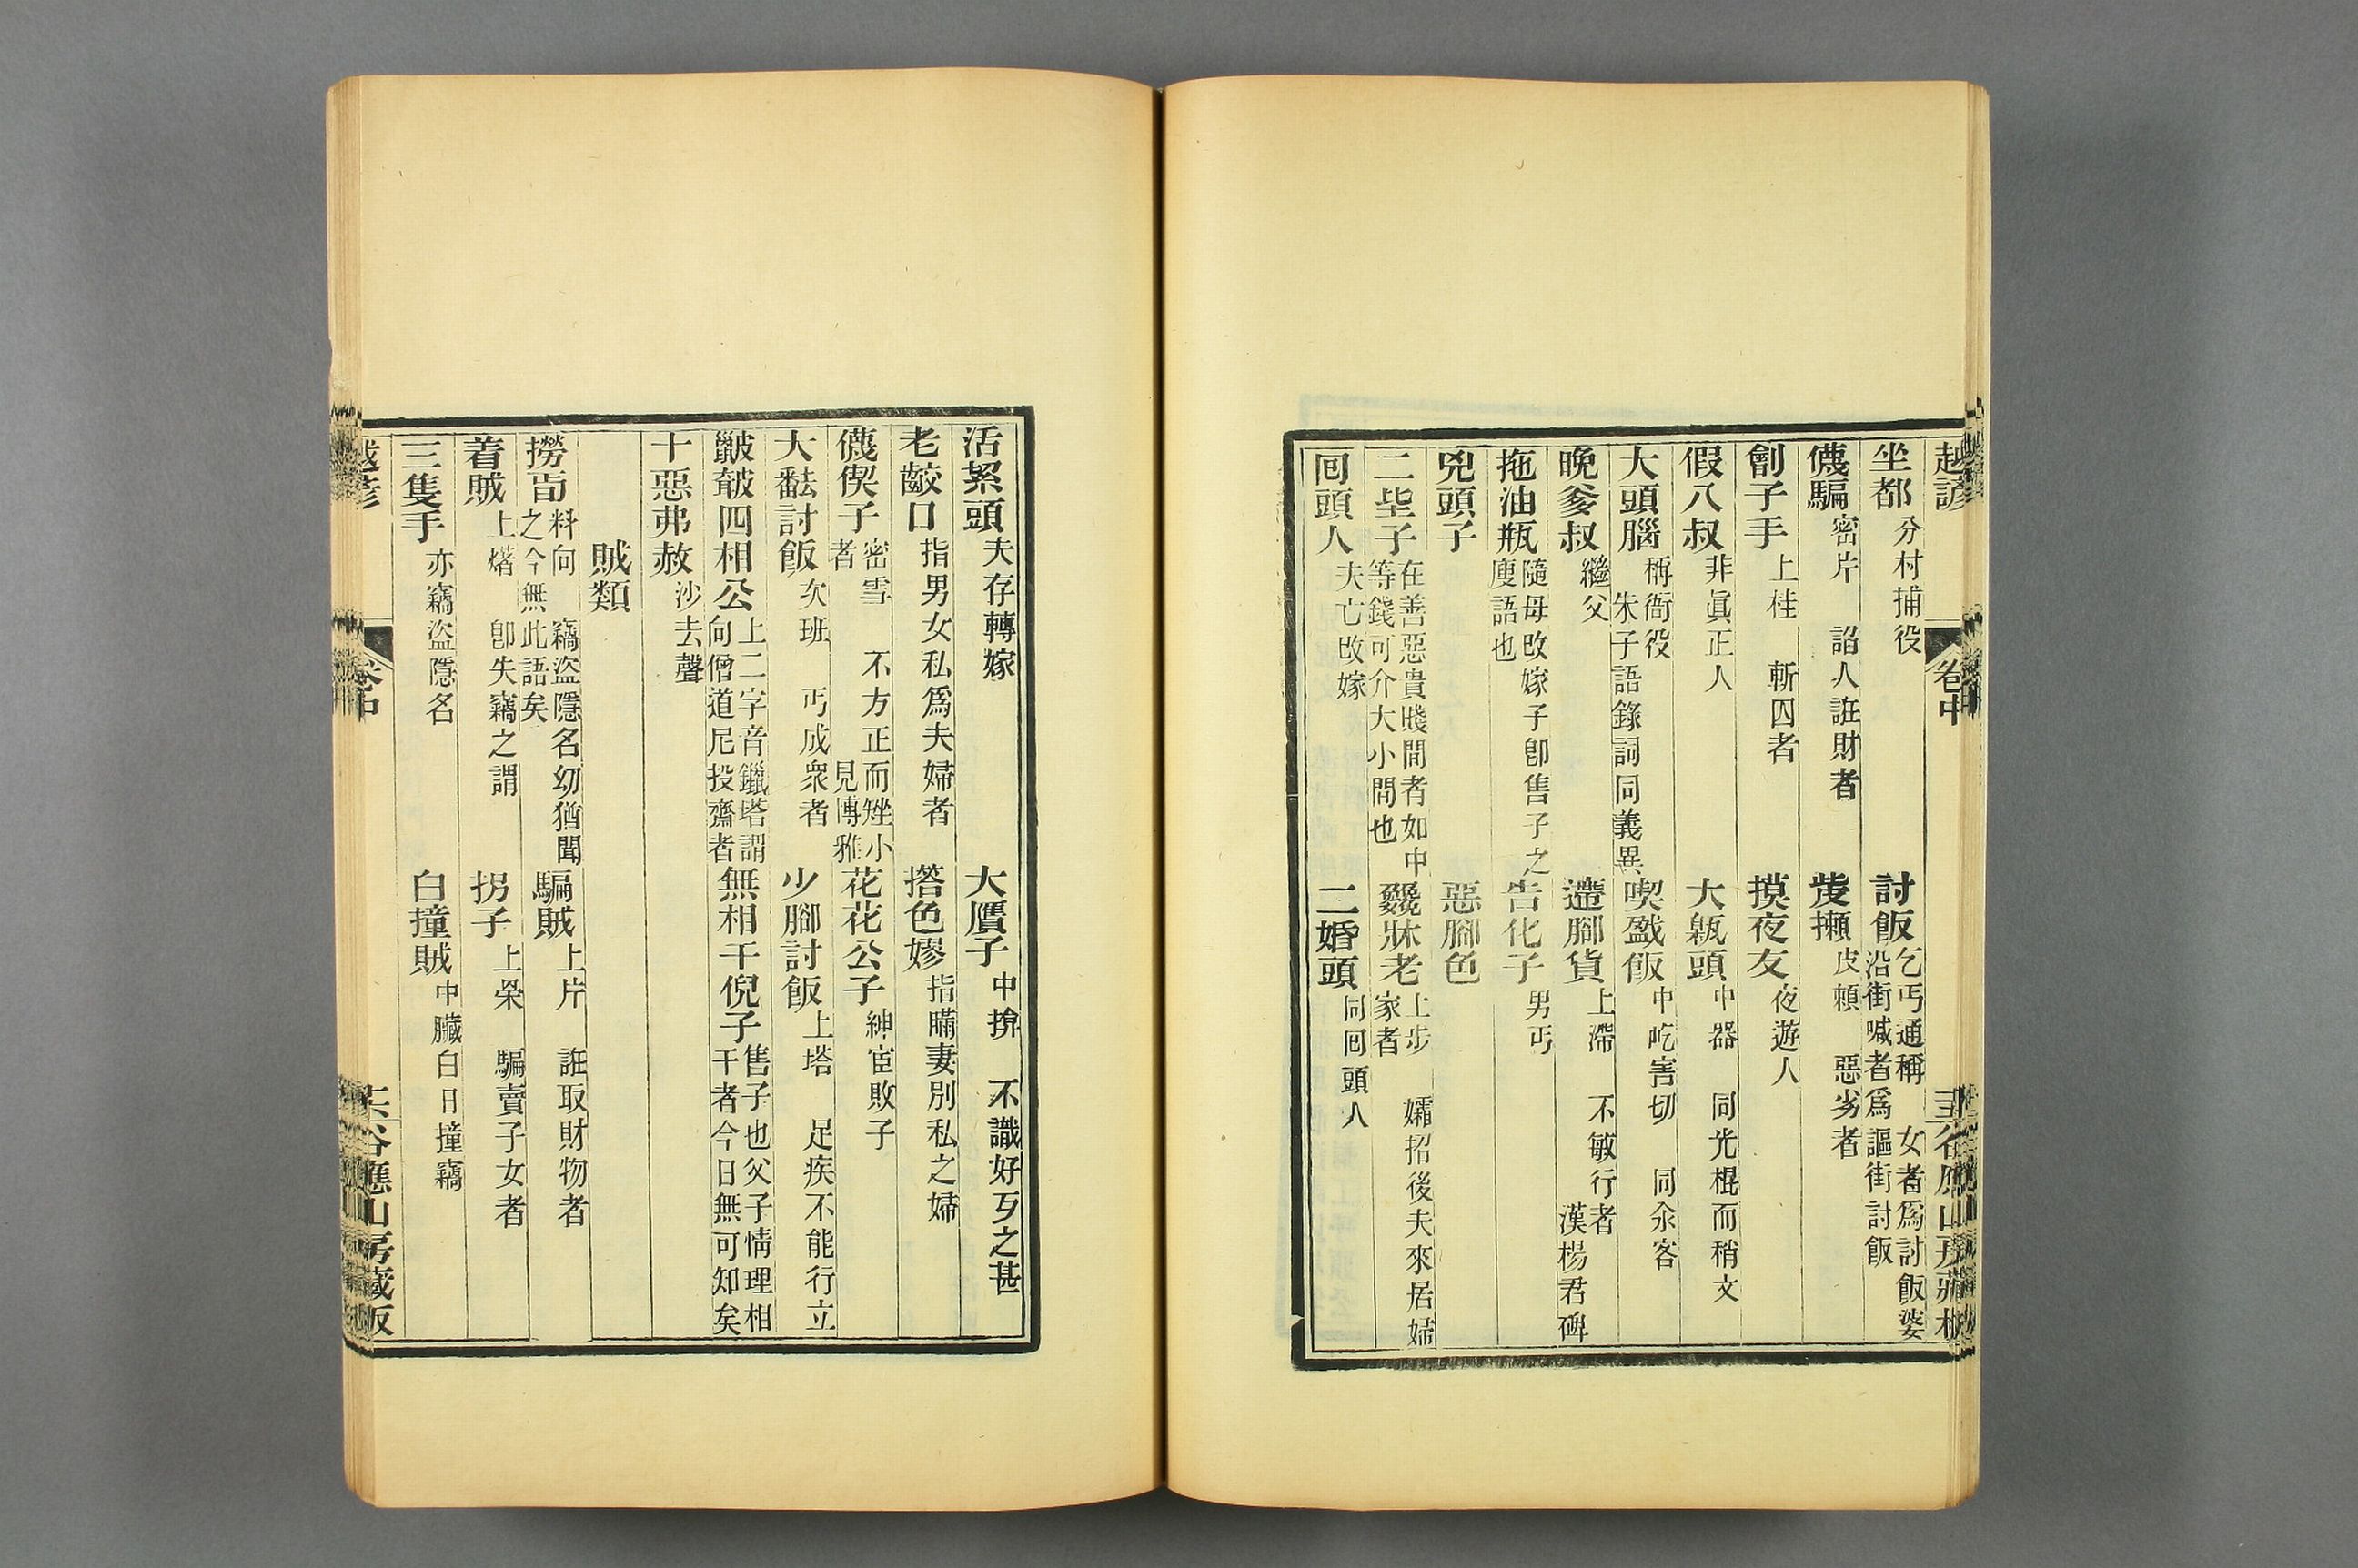 越諺 卷中 谷應山房藏板
坐都 分村捕役 討飯 乞丐通稱 女者爲討飯婆 沿街喊者爲謳街討飯
騙 密片 謟人誑財者 皮賴 惡劣者
劊子手 上桂 斬囚者 摸夜友 夜遊人
假八叔 非眞正人 大甈頭 中器 同光棍而稍文
大頭腦 稱衙役 朱子語錄詞同義異 喫飯 中吃害切 同氽客
晚爹叔 繼父 遰腳貨 上滯 不敏行者 漢楊君碑
拖油瓶 隨母改嫁子卽售子之廋語也 告化子 男丐
兇頭子 惡腳色
二坒子 在善惡貴賤間者如中等錢可介大小間也 牀老 上步 孀招後夫來居婦家者
囘頭人 夫亡改嫁 二婚頭 同囘頭人
活絮頭 夫存轉嫁 大贋子 中掽 不識好歹之甚
老齩口 指男女私爲夫婦者 搭色嫪 指瞞妻別私之婦
偰子 密雪 不方正而矬小者 見博雅 花花公子 紳宦敗子
大討飯 次班 丐成衆者 少腳討飯 上塔 足疾不能行立
四相公 上二字音鑞塔謂向僧道尼投齋者 無相干倪子 售子也父子情理相干者今日無可知矣
十惡弗赦 沙去聲
賊類
撈 料向 竊盜隱名幼猶聞之今無此語矣 騙賊 上片 誑取財物者
着賊 上㸙 卽失竊之謂 拐子 上榮 騙賣子女者
三隻手 亦竊盜隱名 白撞賊 中臟白日撞竊
越諺 卷中 谷應山房藏板